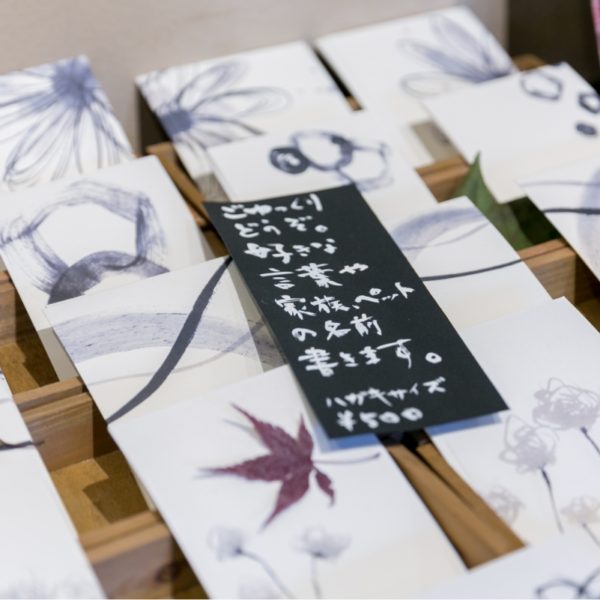 ごゆっくり
どうぞ。
好きな
言葉や
家族、ペット
の名前
書きます。
ハガキサイズ
¥500